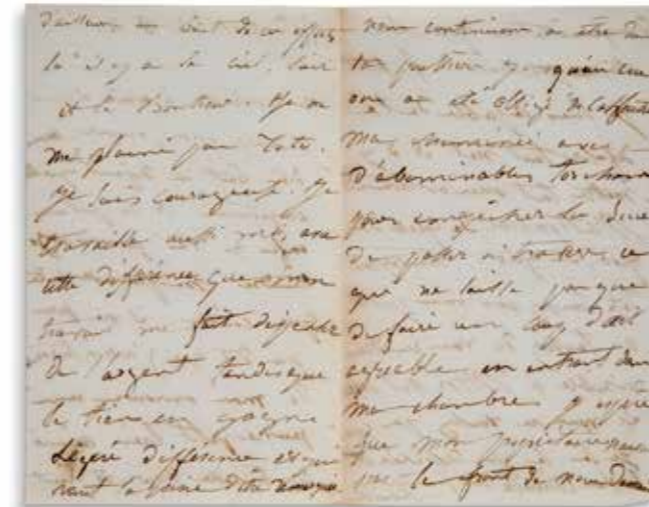 d'ailleurs
là il y a le ciel, l'air
et le Bonheur. Je ne
me plains pas Toto.
Je suis courageuse. Je
travaille aussi moi, avec
cette différence que mon
travail me fait dépenser
de l'argent tandis que
le tien en gagne
Légère différence et qui
vaut la peine d'être
nous continuons à être dans
la poussière
on a été obligé de
ma cheminée avec
d'abominables torchons
pour empêcher la suie
de passer à travers ce
qui ne laisse pas que
de faire un coup d'œil
agréable en entrant dans
ma chambre. J'espère
que mon propriétaire
pas le front de nous